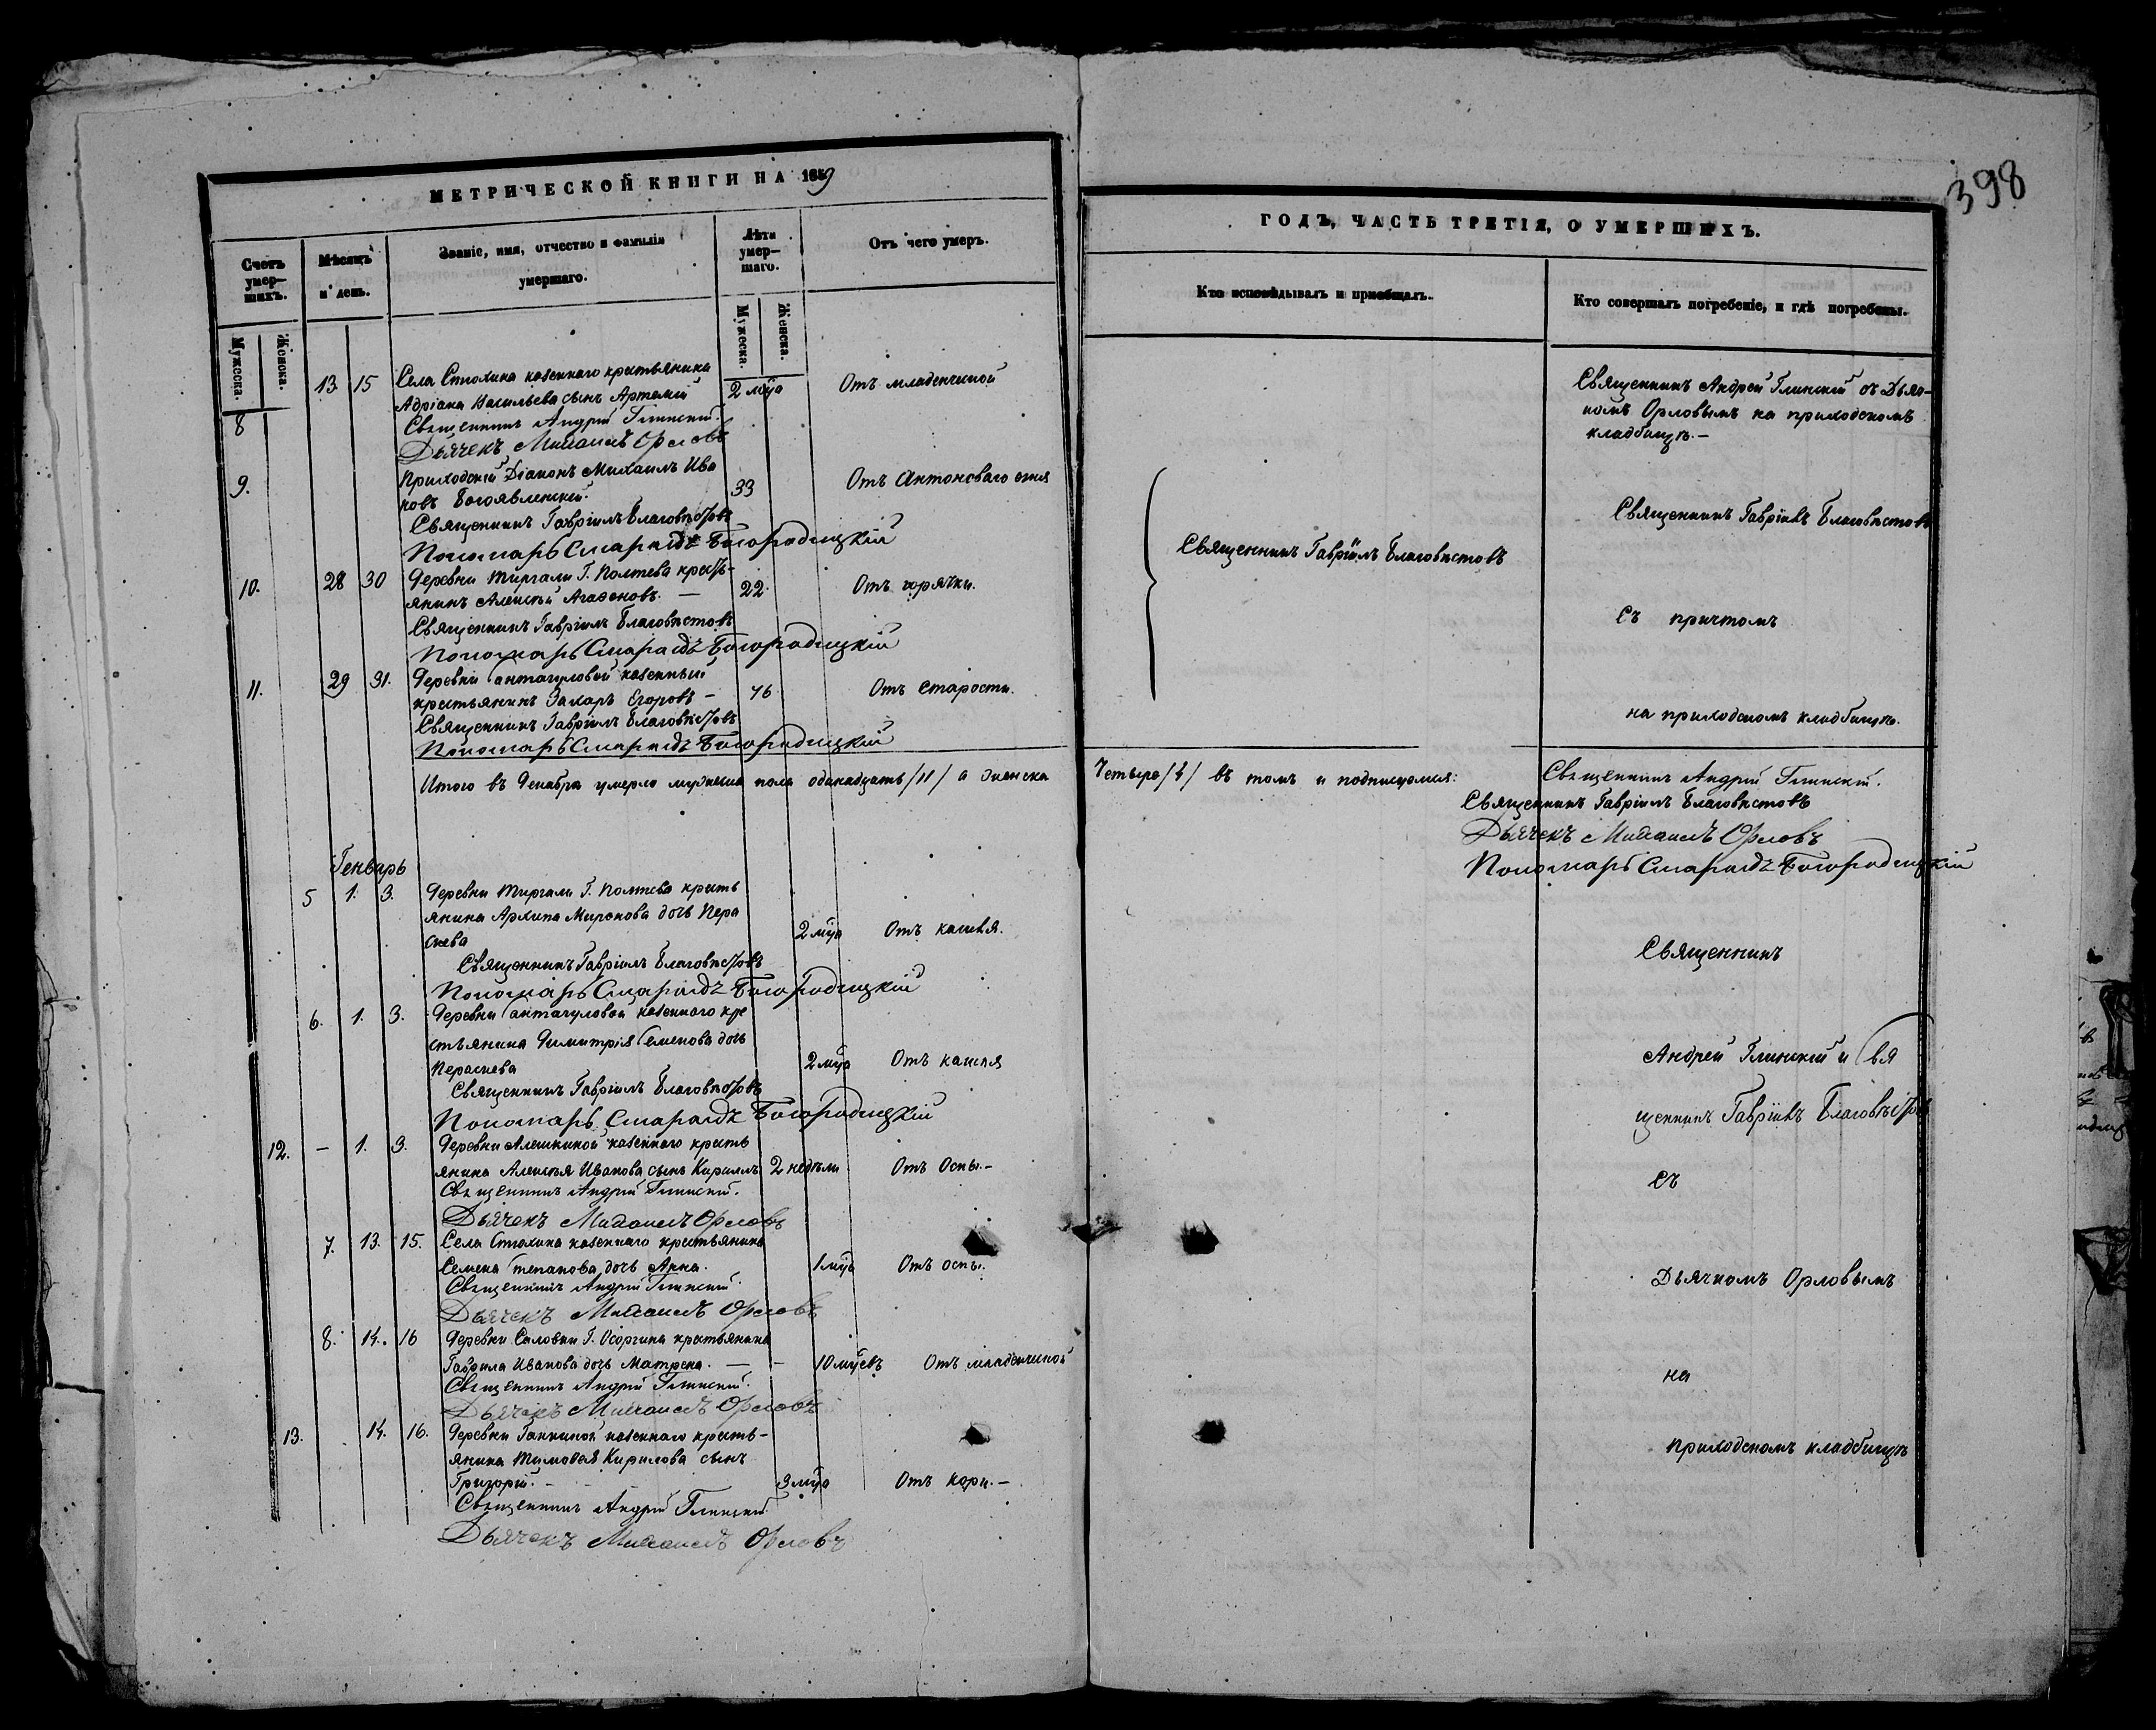 398
МЕТРИЧЕСКОЙ КНИГИ НА 1859
Счетъ умер-шихъ.
Мужеска.
Женска.
Мѣсяцъ и день.
Званіе, имя, отчество и фамилія умершаго.
Лѣта умер-шаго.
Мужеска.
Женска.
Отъ чего умеръ.
8
13 15
Села Стюхина казеннаго крестьянина
Адріана Васильева сынъ Артемій
2 мѣца
Отъ младенческой
Священникъ Андрей Глинскій
Дьячекъ Михаилъ Орловъ
9.
Приходскій Діаконъ Михаилъ Ива
новъ Богоявленскій.
33
Отъ Антоноваго огня
Священникъ Гавріилъ Благовѣстовъ
Пономарь Смарагдъ Богородицкій
10.
28 30
Деревни Тиргали Г. Полтева кресть-
янинъ Алексѣй Агафоновъ. —
22
Отъ горячки.
Священникъ Гавріилъ Благовѣстовъ
Пономарь Смарагдъ Богородицкій
11.
29 31.
Деревни казенный
крестьянинъ Захаръ Егоровъ —
76
Отъ старости.
Священникъ Гавріилъ Благовѣстовъ
Пономарь Смарагдъ Богородицкій
Итого въ Декабрѣ умерло мужеска пола одинадцать /11/ а женска
Генварь
5 1. 3.
Деревни Тиргали Г. Полтева кресть
янина Архипа Миронова дочь Пера
скева
2 мѣца
Отъ кашля.
Священникъ Гавріилъ Благовѣстовъ
Пономарь Смарагдъ Богородицкій
6. 1. 3.
Деревни казеннаго кре
стьянина Димитрія Семенова дочь
Пераскева
2 мѣца
Отъ кашля
Священникъ Гавріилъ Благовѣстовъ
Пономарь Смарагдъ Богородицкій
12. — 1. 3.
Деревни Алешкиной казеннаго кресть
янина Алексѣя Иванова сынъ Кириллъ
2 недѣли
Отъ Оспы. —
Священникъ Андрей Глинскій.
Дьячекъ Михаилъ Орловъ
7. 13. 15.
Села Стюхина казеннаго крестьянина
Семена Степанова дочь Анна.
1 мѣца
Отъ оспы.
Священникъ Андрей Глинскій.
Дьячекъ Михаилъ Орловъ
8. 14. 16
Деревни Саловки Г. Осоргина крестьянина
Гаврила Иванова дочь Матрена. — —
10 мѣцевъ
Отъ младенческой
Священникъ Андрей Глинскій.
Дьячекъ Михаилъ Орловъ
13. 14. 16.
Деревни Ганькиной казеннаго кресть-
янина Тимофея Кирилова сынъ
Григорій. —
3 мѣца
Отъ кори. —
Священникъ Андрей Глинскій
Дьячекъ Михаилъ Орловъ
ГОДЪ, ЧАСТЬ ТРЕТІЯ, О УМЕРШИХЪ.
Кто исповѣдывалъ и пріобщалъ.
Кто совершалъ погребеніе, и гдѣ погребены.
Священникъ Андрей Глинскій съ Дьяч-
комъ Орловымъ на приходскомъ
кладбищѣ. —
Священникъ Гавріилъ Благовѣстовъ
Священникъ Гавріилъ Благовѣстовъ
Съ причтомъ
на приходскомъ кладбищѣ.
Четыре /4/ въ томъ и подписуемся:
Священникъ Андрей Глинскій.
Священникъ Гавріилъ Благовѣстовъ
Дьячекъ Михаилъ Орловъ
Пономарь Смарагдъ Богородицкій
Священникъ
Андрей Глинскій и Свя
щенникъ Гавріилъ Благовѣстовъ
съ
Дьячкомъ Орловымъ
на
приходскомъ кладбищѣ